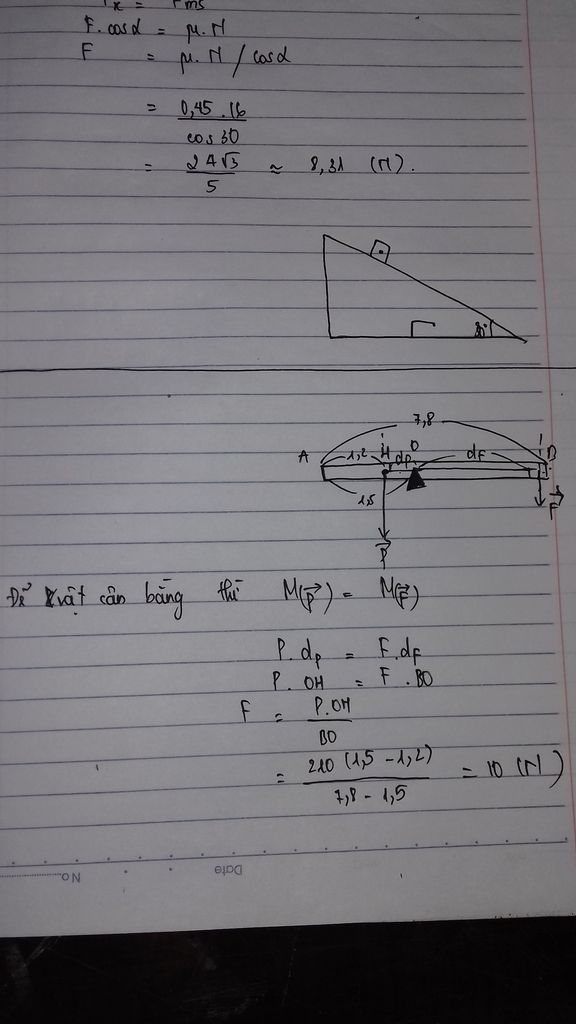 F. cosα = μ. N
F = μ. N / cosα
= 0,45 . 16 / cos 30
= 24√3 / 5 ≈ 8,31 (N).
30°
7,8
A 1,2 H dP O dF B
1,5
P F
Để vật cân bằng thì M(P) = M(F)
P. dP = F. dF
P. OH = F . BO
F = P. OH / BO
= 210 (1,5 - 1,2) / 7,8 - 1,5 = 10 (N)
Date
No